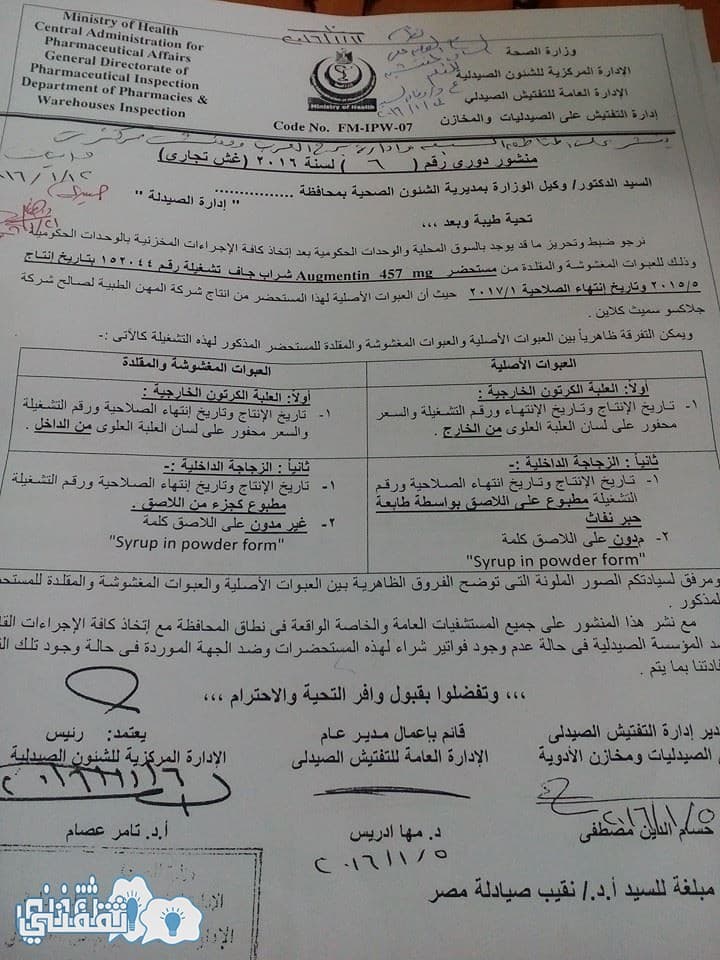 Ministry of Health
Central Administration for
Pharmaceutical Affairs
General Directorate of
Pharmaceutical Inspection
Department of Pharmacies &
Warehouses Inspection
Ministry of Health
Code No. FM-IPW-07
وزارة الصحة
الإدارة المركزية للشئون الصيدلية
الإدارة العامة للتفتيش الصيدلي
إدارة التفتيش على الصيدليات والمخازن
منشور دورى رقم ( ٦ ) لسنة ٢٠١٦ (غش تجارى)
السيد الدكتور/ وكيل الوزارة بمديرية الشئون الصحية بمحافظة ................
" إدارة الصيدلة "
تحية طيبة وبعد ،،،
نرجو ضبط وتحريز ما قد يوجد بالسوق المحلية والوحدات الحكومية بعد إتخاذ كافة الإجراءات المخزنية بالوحدات الحكومية
وذلك للعبوات المغشوشة والمقلدة من مستحضر Augmentin 457 mg شراب جاف تشغيلة رقم ١٥٢٠٤٤ بتاريخ إنتاج
٢٠١٥/٥ وتاريخ إنتهاء الصلاحية ٢٠١٧/١ حيث أن العبوات الأصلية لهذا المستحضر من انتاج شركة المهن الطبية لصالح شركة
جلاكسو سميث كلاين .
ويمكن التفرقة ظاهرياً بين العبوات الأصلية والعبوات المغشوشة والمقلدة للمستحضر المذكور لهذه التشغيلة كالآتى :-
العبوات الأصلية
العبوات المغشوشة والمقلدة
أولاً: العلبة الكرتون الخارجية :
١- تاريخ الإنتاج وتاريخ الإنتهاء ورقم التشغيلة والسعر
محفور على لسان العلبة العلوى من الخارج .
أولاً: العلبة الكرتون الخارجية :
١- تاريخ الإنتاج وتاريخ إنتهاء الصلاحية ورقم التشغيلة
والسعر محفور على لسان العلبة العلوى من الداخل .
ثانياً : الزجاجة الداخلية :-
١- تاريخ الإنتاج وتاريخ انتهاء الصلاحية ورقم
التشغيلة مطبوع على اللاصق بواسطة طابعة
حبر نفاث
٢- مدون على اللاصق كلمة
"Syrup in powder form"
ثانياً : الزجاجة الداخلية :-
١- تاريخ الإنتاج وتاريخ إنتهاء الصلاحية ورقم التشغيلة
مطبوع كجزء من اللاصق .
٢- غير مدون على اللاصق كلمة
"Syrup in powder form"
ومرفق لسيادتكم الصور الملونة التى توضح الفروق الظاهرية بين العبوات الأصلية والعبوات المغشوشة والمقلدة
المذكور .
مع نشر هذا المنشور على جميع المستشفيات العامة والخاصة الواقعة فى نطاق المحافظة مع إتخاذ كافة الإجراءات
المؤسسة الصيدلية فى حالة عدم وجود فواتير شراء لهذه المستحضرات وضد الجهة الموردة فى حالة وجود تلك
بما يتم .
،،، وتفضلوا بقبول وافر التحية والاحترام ،،،
إدارة التفتيش الصيدلى
الصيدليات ومخازن الأدوية
٢٠١٦/١/٥
حسام الدين مصطفى
قائم بإعمال مدير عام
الإدارة العامة للتفتيش الصيدلى
د. مها ادريس
٢٠١٦/١/٥
يعتمد: رئيس
الإدارة المركزية للشئون الصيدلية
أ.د. تامر عصام
مبلغة للسيد أ.د./ نقيب صيادلة مصر
ثقفني